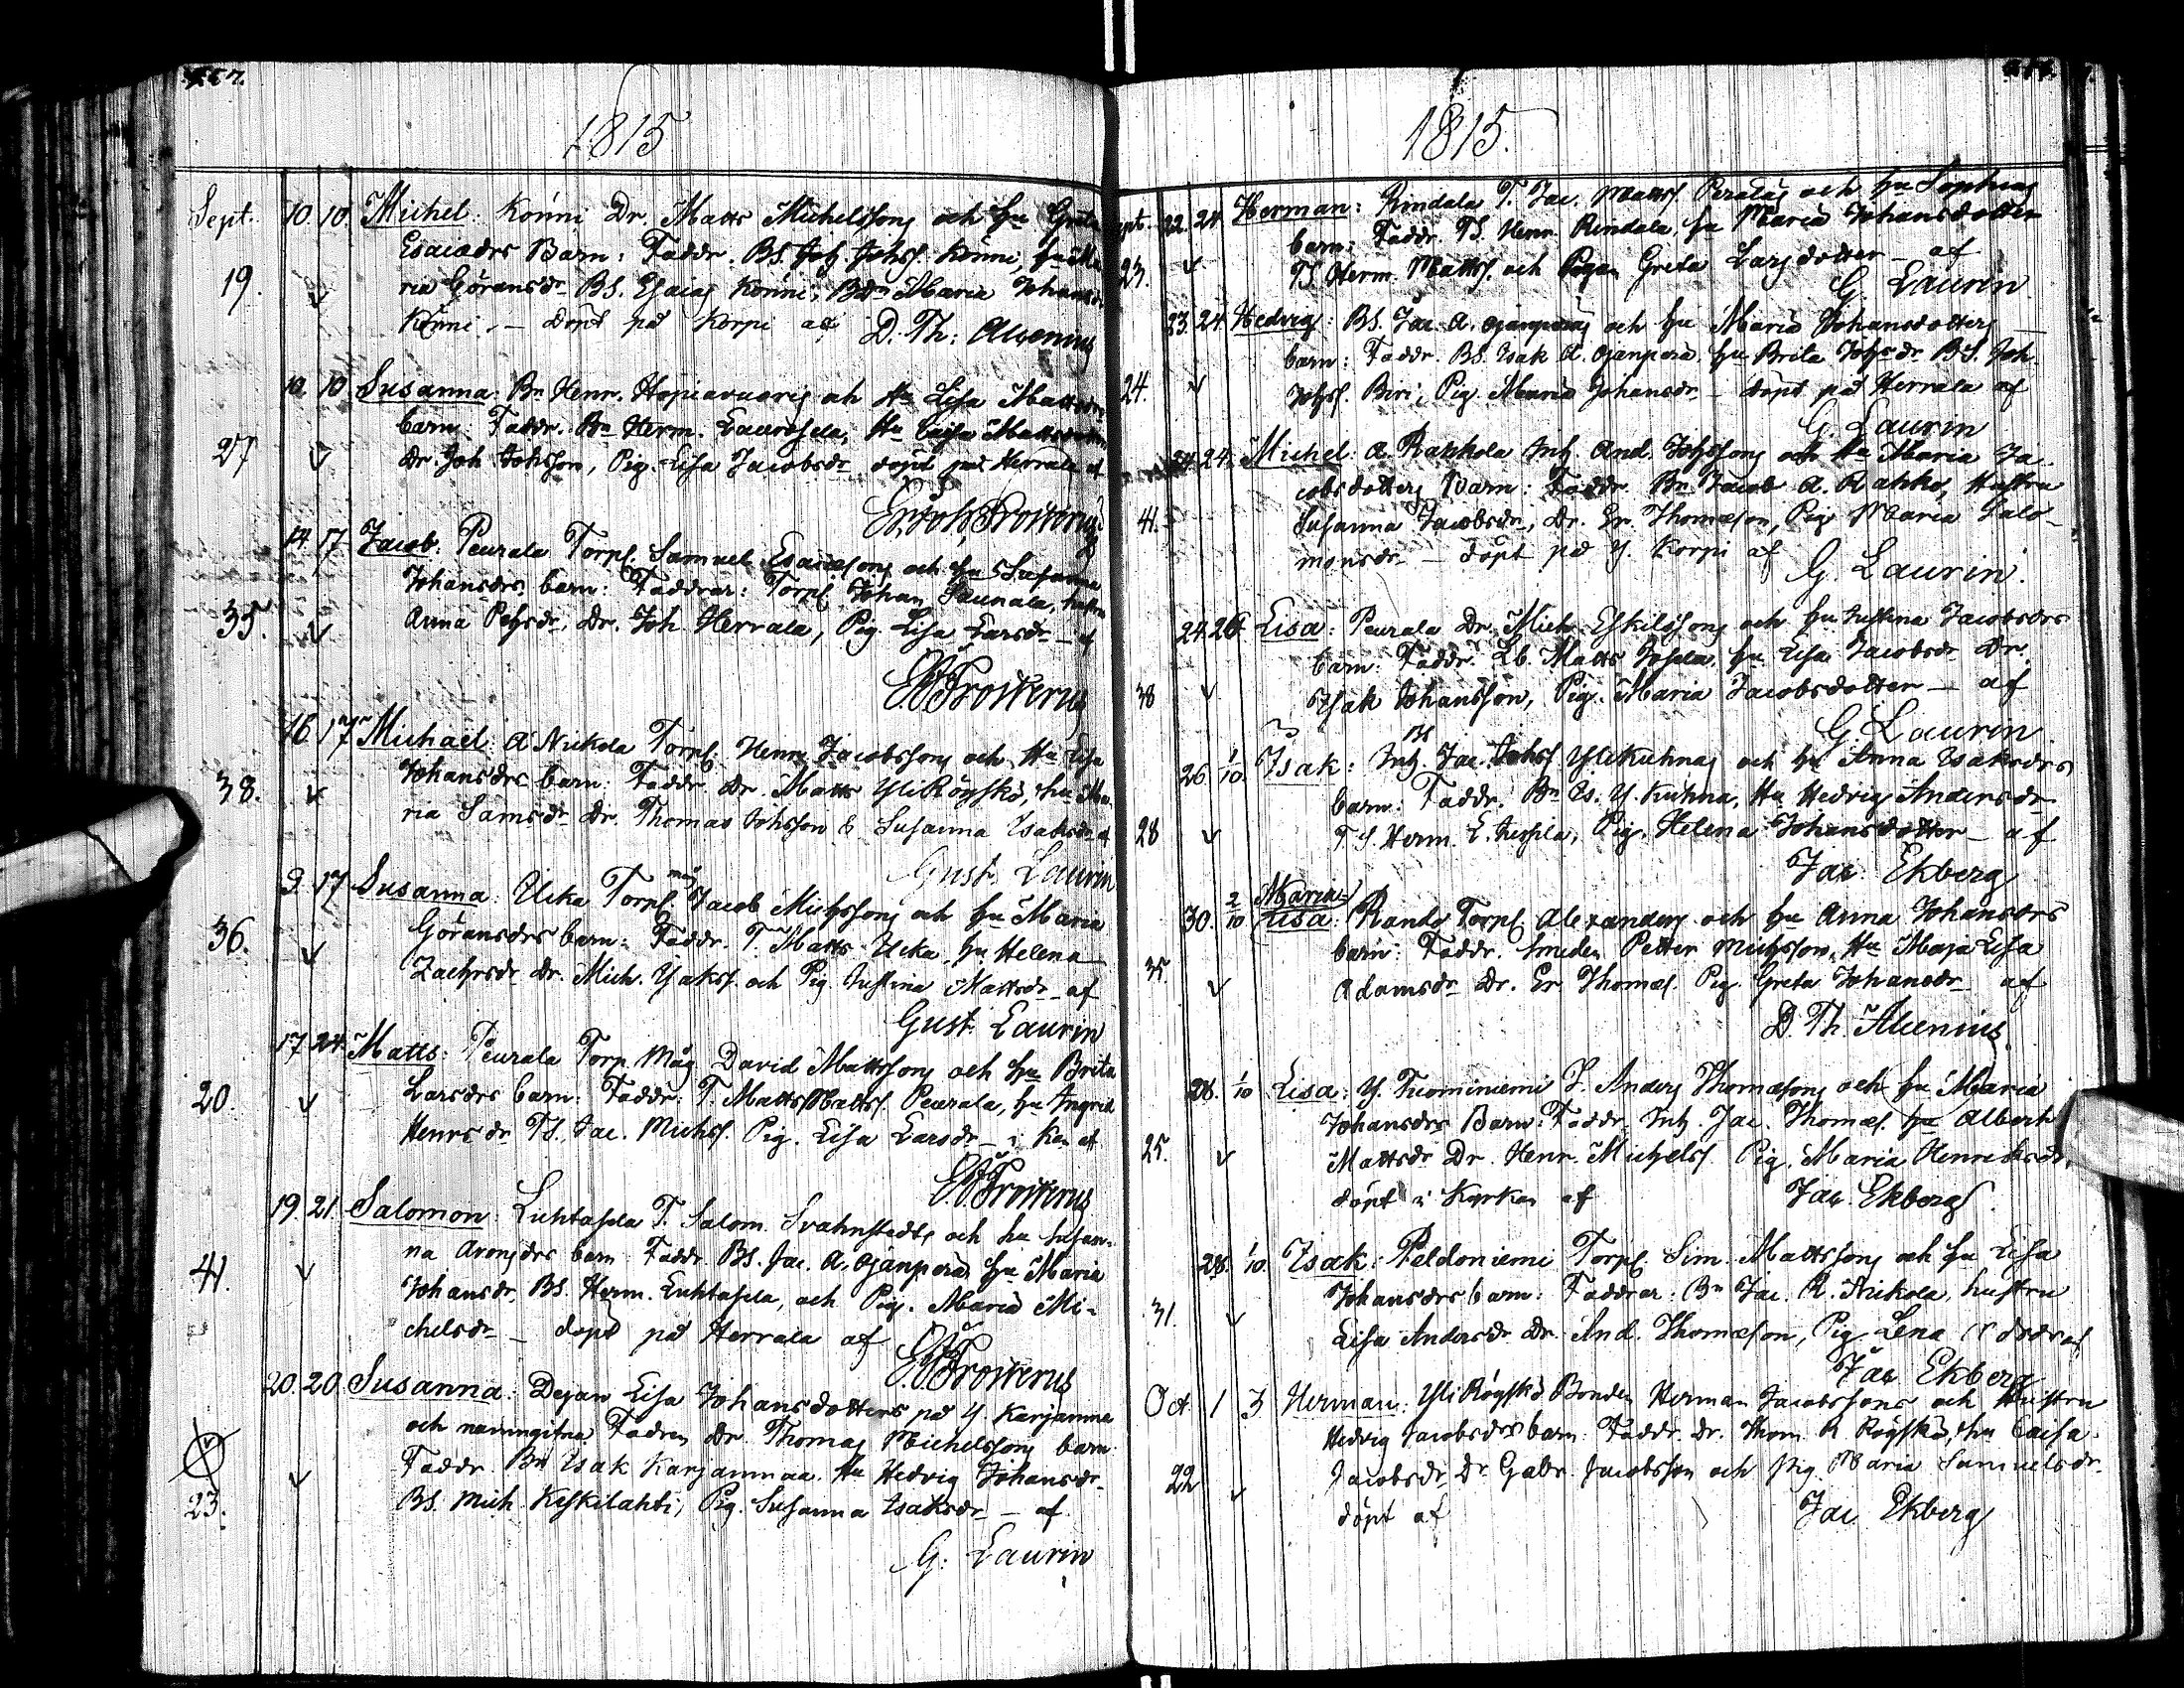 1815
Sept. 10. 10. Michel: Könni Dr. Matts Michelssons och Hu Greta
Esaiædrs Barn: Faddr. BS. Joh. Johss. Könni, Hu Ma
19. ria Göransdr BS. Esaias Könni, Maria Johansdr
Könni. – döpt på Korpi af D. Th: Alcenius
10 10 Susanna: Bn Henr. Hopiavuoris och Hu Lisa Mattsdrs
barn: Faddr. Bn Herm. Laurosela, Hu Caisa Mattsdotter
27 Dr. Joh. Johsson, Pig. Lisa Jacobsdr döpt på Herrala af
Er. Joh. Frosterus
14. 17 Jacob: Peurala Torp. Samuel Esaiæsons och Hu Susanna
Johansdrs barn: Faddrar: Torp. Johan Saunala, hustru
35. Anna Pehrsdr, Dr. Joh. Herrala, Pig. Lisa Larsdr – af
EJFrosterus
16 17 Michael: A Nikola Torp. Henr. Jacobssons och Hu Lisa
Johansdrs barn: Faddr. Dr. Matts Yli Röyskö, Hu Ma
38. ria Samsdr Dr. Thomas Johsson & Susanna Isaksdr af
Gust. Laurin
9. 17 Susanna: Ucka Torp. måg Jacob Michssons och Hu Maria
Göransdrs barn: Faddr. T. Matts Ucka, Hu Helena
36. Zachrsdr Dr. Mich. Isakss. och Pig. Justina Mattsdr – af
Gust. Laurin
17 24. Matts: Peurala Torp. Måg David Mattssons och Hu Brita
20. Larsdrs barn: Faddr: T. Matts Matts. Peurala, Hu Ingrid
Henrsdr TS. Jac. Michss. Pig. Lisa Larsdr – i Kan af
EJFrosterus
19. 21. Salomon: Luhtasela T. Salom. Svahnstedts och hu Susan-
na Aronsdrs barn Faddr. BS. Jac. A. Ojanperä, Hu Maria
41. Johansdr, BS. Herm. Luhtasela, och Pig. Maria Mi-
chelsdr – döpt på Herrala af EJFrosterus
20. 20 Susanna: Dejan Lisa Johansdotters på Y. Karjanma
och namngifna Fadren Dr. Thomas Michelssons barn
Faddr. Bn Isak Karjanmaa. Hu Hedvig Johansdr
23. BS. Mich. Keskilahti, Pig. Susanna Isaksdr – af
G. Laurin
1815.
22. 24 Herman: Rindala T. Jac. Mattss. Peralas och Hu Sophias
barn: Faddr. TS. Henr. Rindala, Hu Maria Johansdotter
23. TS Herm. Mattss. och Pigan Greta Larsdotter – af
G. Laurin
23. 24 Hedvig: BS. Jac. A. Ojanperäs och Hu Maria Johansdotters
barn: Faddr. BS. Isak A. Ojanperä. Hu Brita Johsdr BS. Joh.
24. Johss. Biri, Pig. Maria Johansdr – döpt på Herrala af
G. Laurin
24. 24. Michel: A. Rahkola Inh. And. Johssons och Hu Maria Ja-
cobsdotters barn: Faddr. Bn Jacob A. Rahko, Hustru
41. Susanna Jacobsdr, Dr. Er. Thomæson, Pig Maria Salo-
monsdr – döpt på Y. Korpi af G. Laurin.
24. 26. Lisa: Peurala Dr. Mich. Eskilssons och Hu Justina Jacobsdrs
barn: Faddr. Lb. Matts Josela Hu Lisa Jacobsdr Dr.
38 Isak Johansson, Pig. Maria Jacobsdotter – af
G. Laurin
26. 1/10. Isak: Inh. Jac. Johss. Ylikuhnas och Hu Anna Isaksdrs
barn: Faddr. Bn Es. Y. Kuhna, Hu Hedvig Andersdr
28 T.S. Herm. L. Jussila, Pig. Helena Johansdotter – af
Jac. Ekberg
30. 2/10 Maria Lisa: Rando Torp. Alexanders och Hu Anna Johansdrs
barn: Faddr. Smeden Petter Michsson, Hu Maja Lisa
35. Adamsdr Dr. Er. Thomæs. Pig. Greta Johansdr af
D. Th. Alcenius.
28. 1/10 Lisa: Y. Tuominiemi T. Anders Thomæsons och Hu Maria
Johansdrs Barn: Faddr. Inh. Jac. Thomæs. Hu Albert
25. Mattsdr Dr. Henr. Michelss. Pig. Maria Henricksdr.
döpt i Kyrkan af Jac. Ekberg.
28. 1/10. Isak: Peldoniemi Torp. Sim. Mattssons och Hu Lisa
Johansdrs barn: Faddrar: Bn Jac. A. Nikola, hustru
31. Lisa Andersdr Dr. And. Thomæson, Pig. Lena af
Jac Ekberg
Oct. 1 3 Herman: Yli Röyskö Bonden Herman Jacobssons och Hustru
Hedvig Jacobsdrs barn Faddr. Dr. Thom. R. Röyskö, Hu Caisa
22 Jacobsdr Dr. Gabr. Jacobsson och Pig. Maria Samuelsdr
döpt af Jac Ekberg